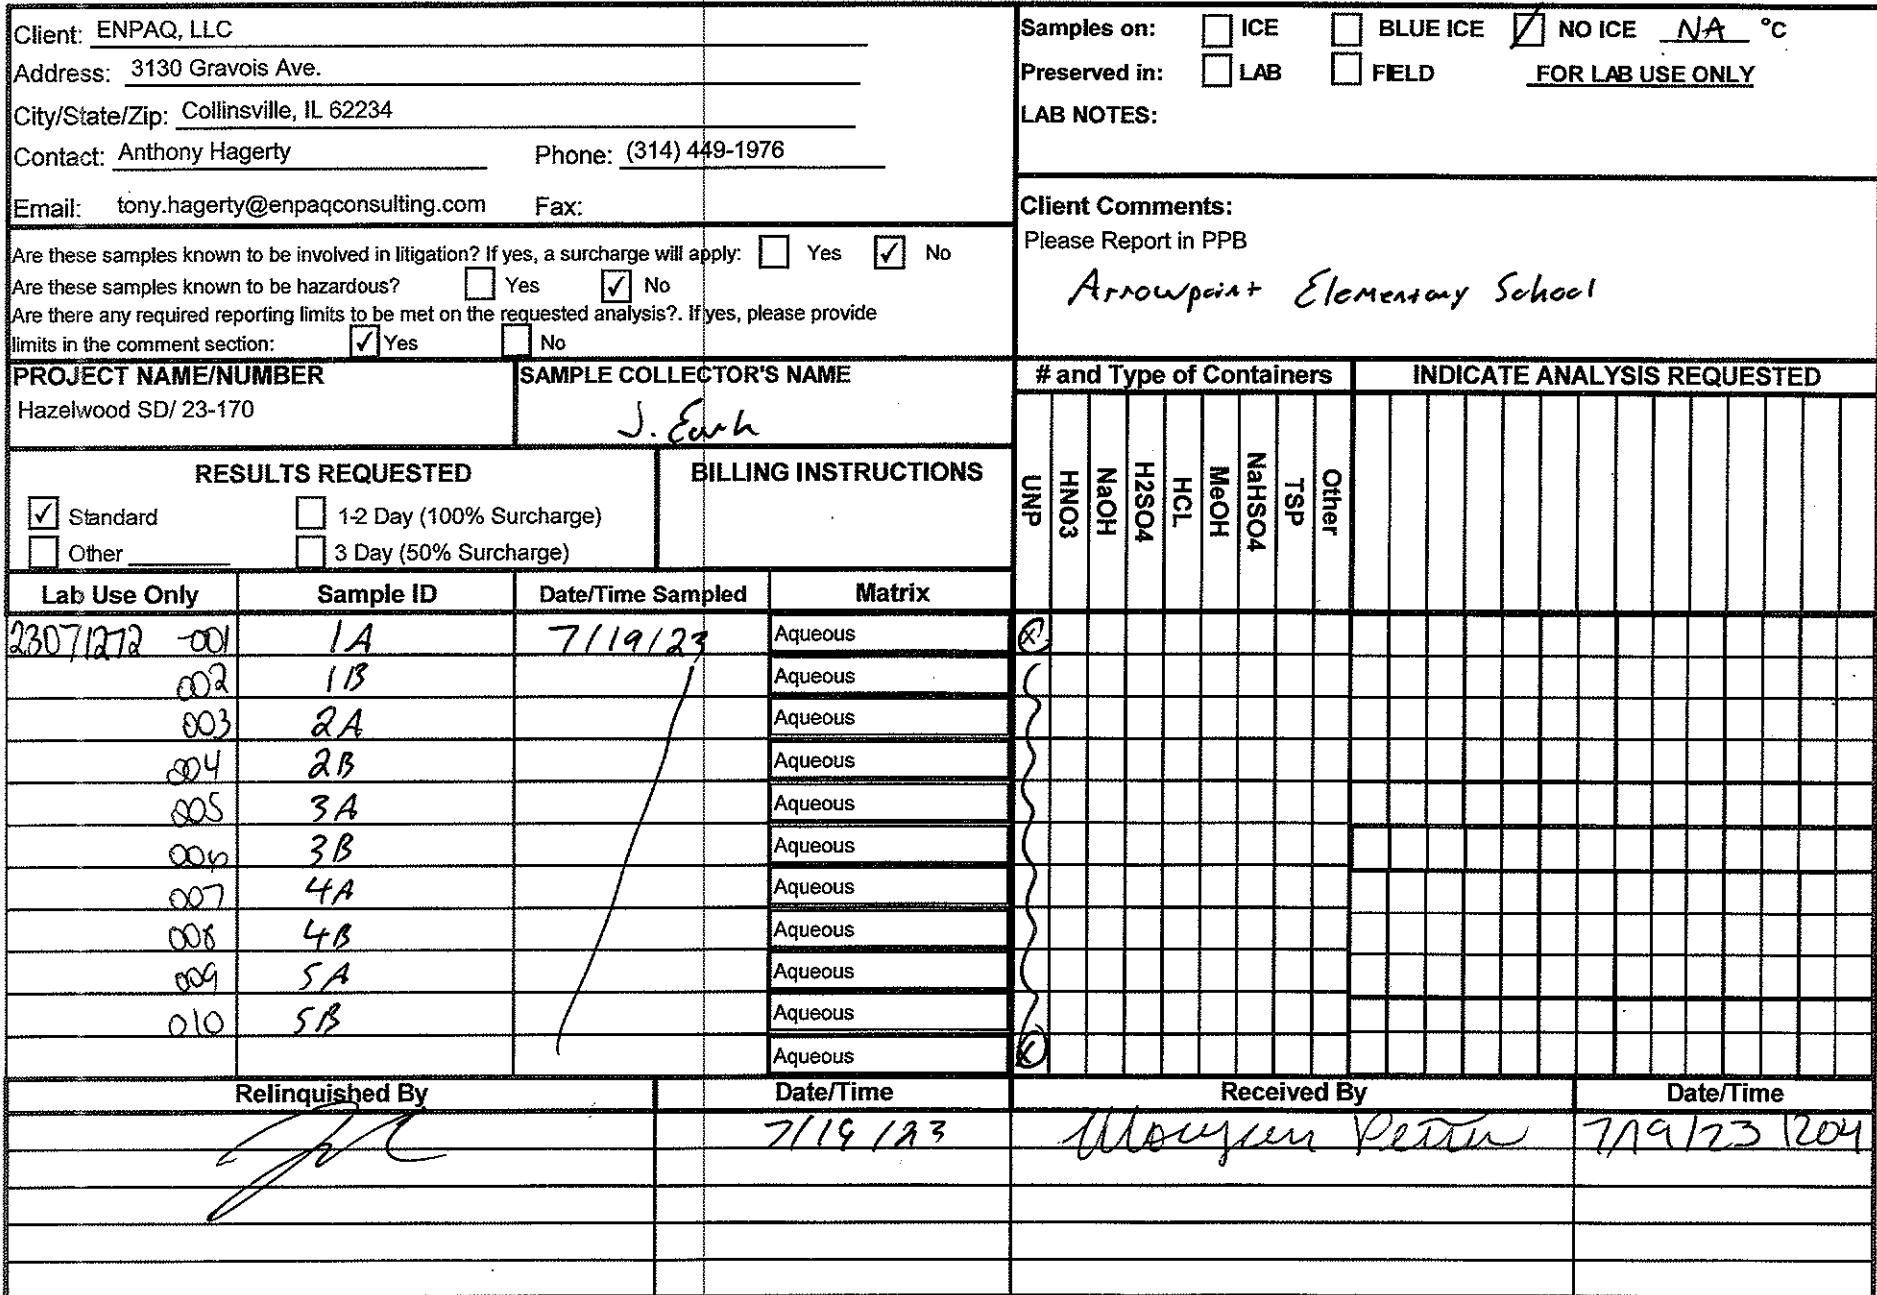 Client: ENPAQ, LLC
Address: 3130 Gravois Ave.
City/State/Zip: Collinsville, IL 62234
Contact: Anthony Hagerty Phone: (314) 449-1976
Email: tony.hagerty@enpaqconsulting.com Fax:
Samples on: ICE BLUE ICE NO ICE NA °C
Preserved in: LAB FIELD FOR LAB USE ONLY
LAB NOTES:
Client Comments:
Please Report in PPB
Arrowpoint Elementary School
Are these samples known to be involved in litigation? If yes, a surcharge will apply: Yes ✓ No
Are these samples known to be hazardous? Yes ✓ No
Are there any required reporting limits to be met on the requested analysis?. If yes, please provide
limits in the comment section: ✓ Yes No
PROJECT NAME/NUMBER
Hazelwood SD/ 23-170
SAMPLE COLLECTOR'S NAME
J.
RESULTS REQUESTED
✓ Standard 1-2 Day (100% Surcharge)
Other 3 Day (50% Surcharge)
BILLING INSTRUCTIONS
# and Type of Containers INDICATE ANALYSIS REQUESTED
UNP
HNO3
NaOH
H2SO4
HCL
MeOH
NaHSO4
TSP
Other
Lab Use Only Sample ID Date/Time Sampled Matrix
23071272 -001 1A 7/19/23 Aqueous X
002 1B Aqueous
003 2A Aqueous
004 2B Aqueous
005 3A Aqueous
006 3B Aqueous
007 4A Aqueous
008 4B Aqueous
009 5A Aqueous
010 5B Aqueous
Aqueous X
Relinquished By Date/Time Received By Date/Time
7/19/23 7/19/23 1204